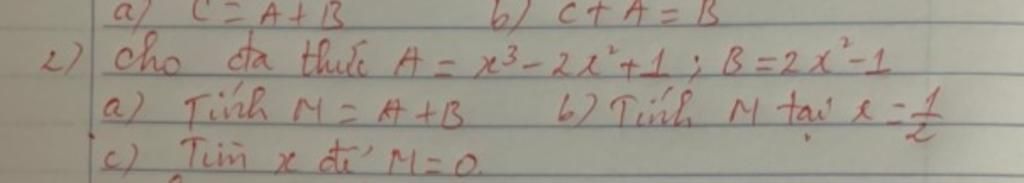 a) C = A + B b) C + A = B
2) Cho đa thức A = x³ - 2x² + 1 ; B = 2x² - 1
a) Tính M = A + B b) Tính M tại x = 1/2
c) Tìm x để M = 0.